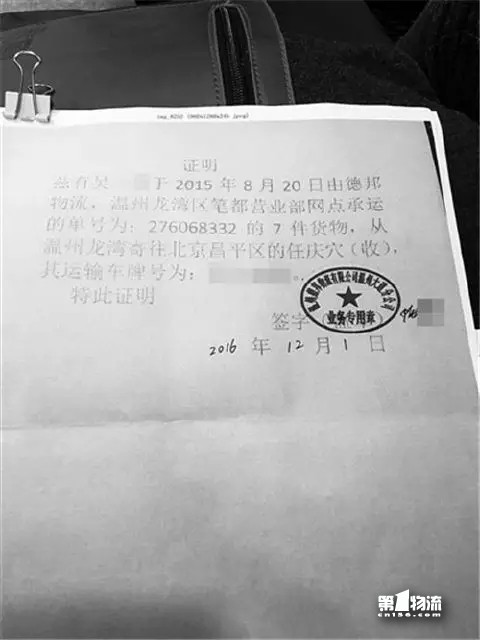 证明
兹有吴 于 2015 年 8 月 20 日由德邦
物流，温州龙湾区笔都营业部网点承运
的单号为：276068332 的 7 件货物，从
温州龙湾寄往北京昌平区的任庆穴（收），
其运输车牌号为： 。
特此证明
签字（
业务专用章
2016 年 12 月 1 日
第1物流
cn156.com